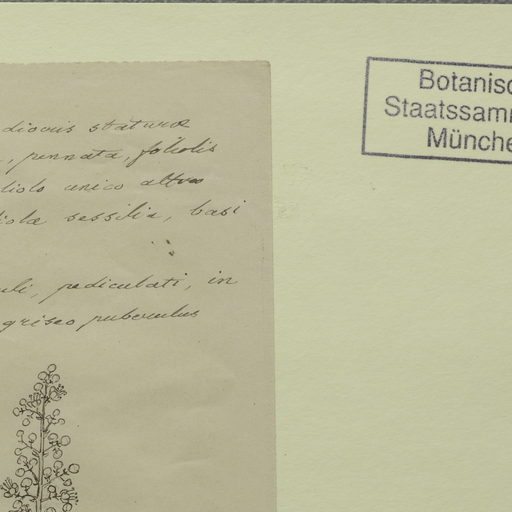 diocris staturæ
, pennata, foliolis
liolo unico altero
iola sessilia, basi
uli, pediculati, in
griseo puberulus
Botanisc
Staatssamm
Münche